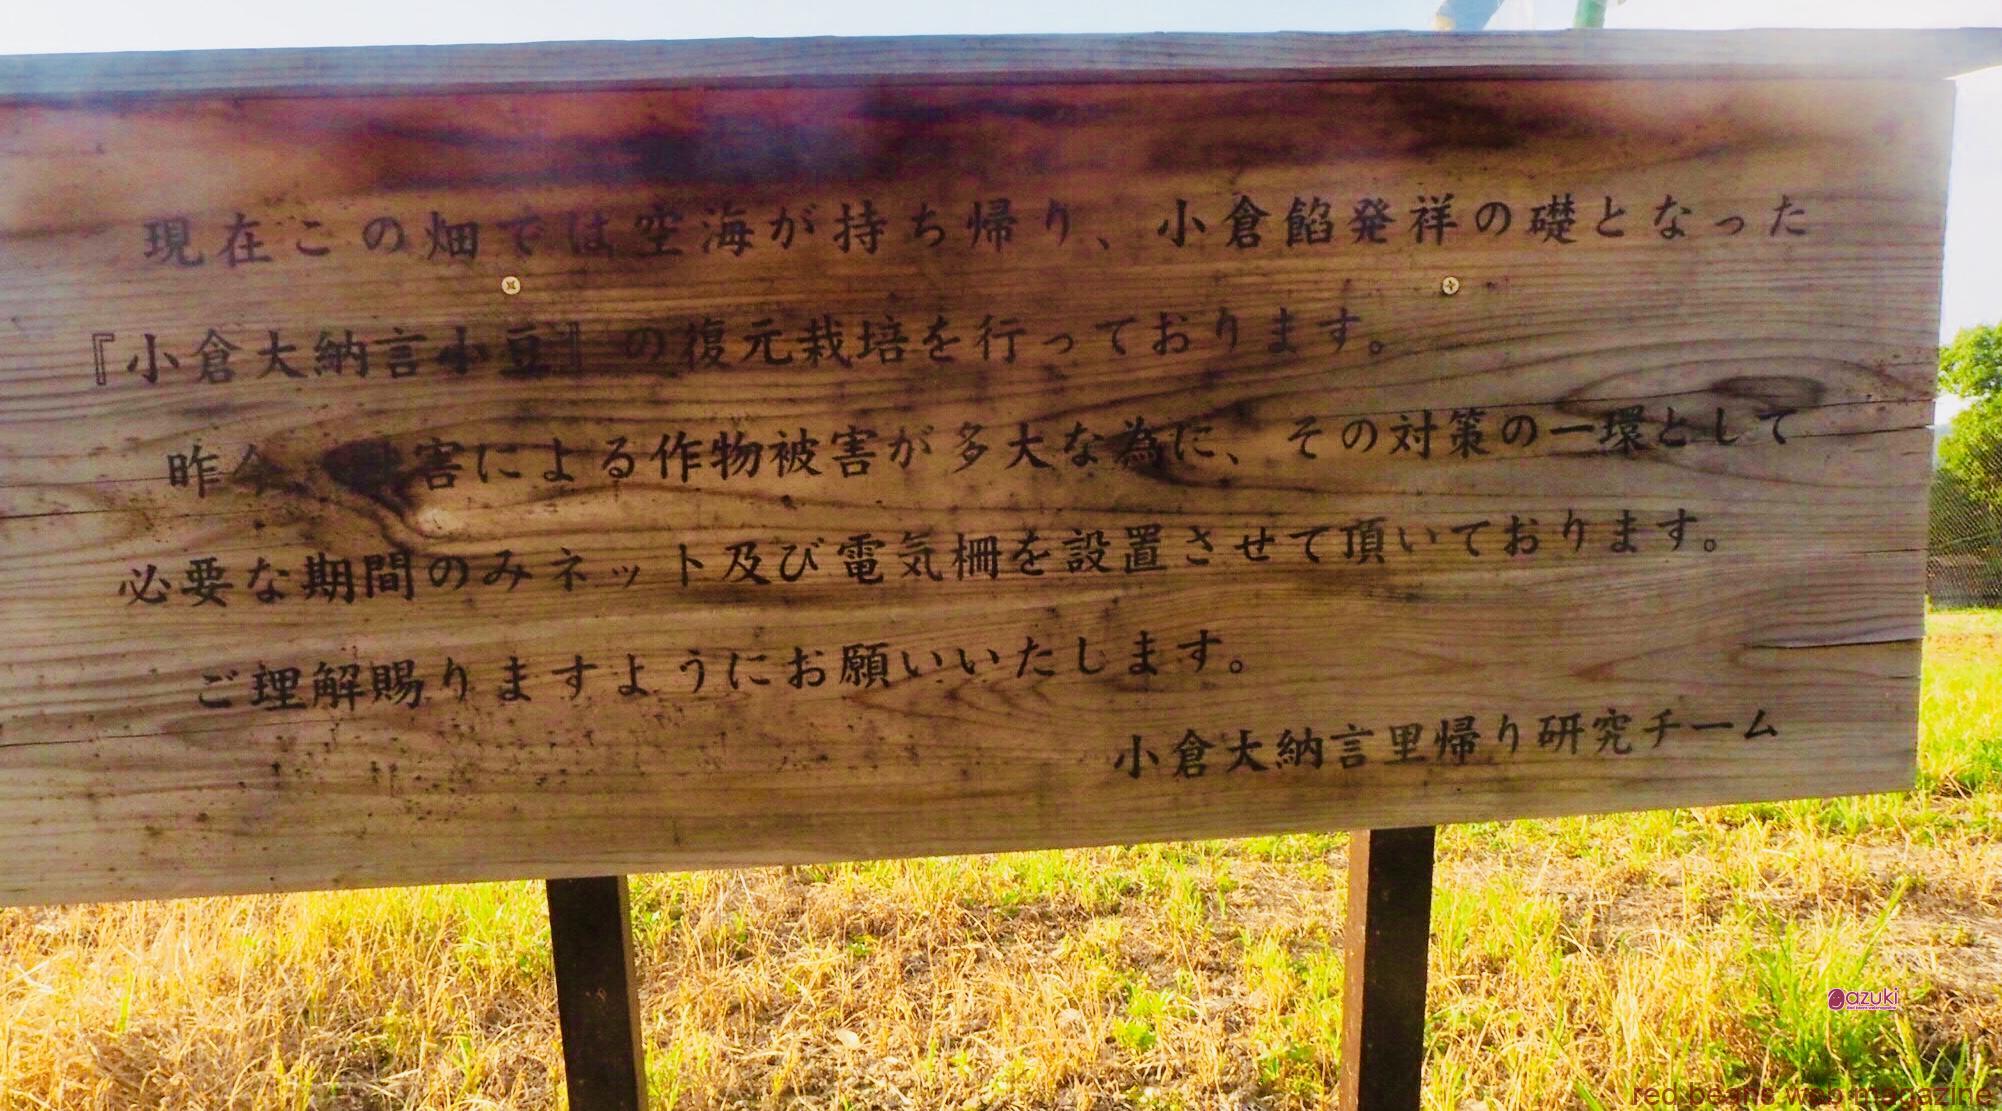 現在この畑では空海が持ち帰り、小倉餡発祥の礎となった
『小倉大納言小豆』の復元栽培を行っております。
昨今 害による作物被害が多大な為に、その対策の一環として
必要な期間のみネット及び電気柵を設置させて頂いております。
ご理解賜りますようにお願いいたします。
小倉大納言里帰り研究チーム
azuki
red beans web magazine